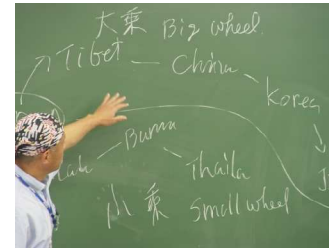 大乗 Big wheel
Tibet — China — Korea
Burma
Thaila
小乗 Small wheel